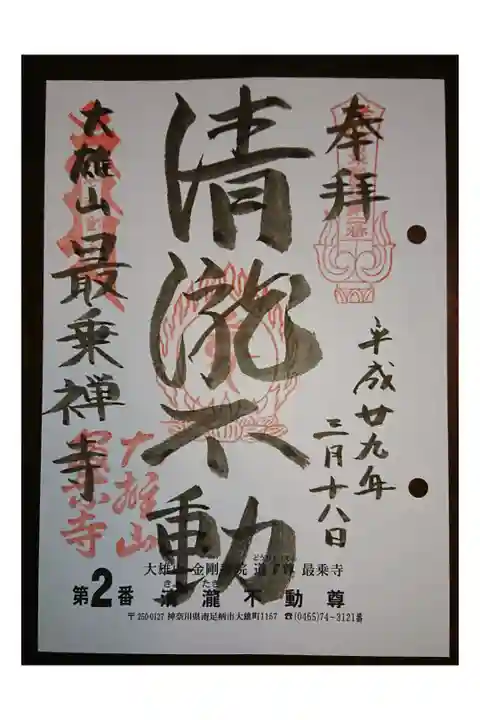 奉拝
平成廿九年
三月十八日
清瀧不動
大雄山最乗禅寺
大雄山
最乗寺
大雄山 金剛 院 道了尊 最乗寺
第2番 清瀧不動尊
〒250-0127 神奈川県南足柄市大雄町1157 ☎(0465)74-3121番